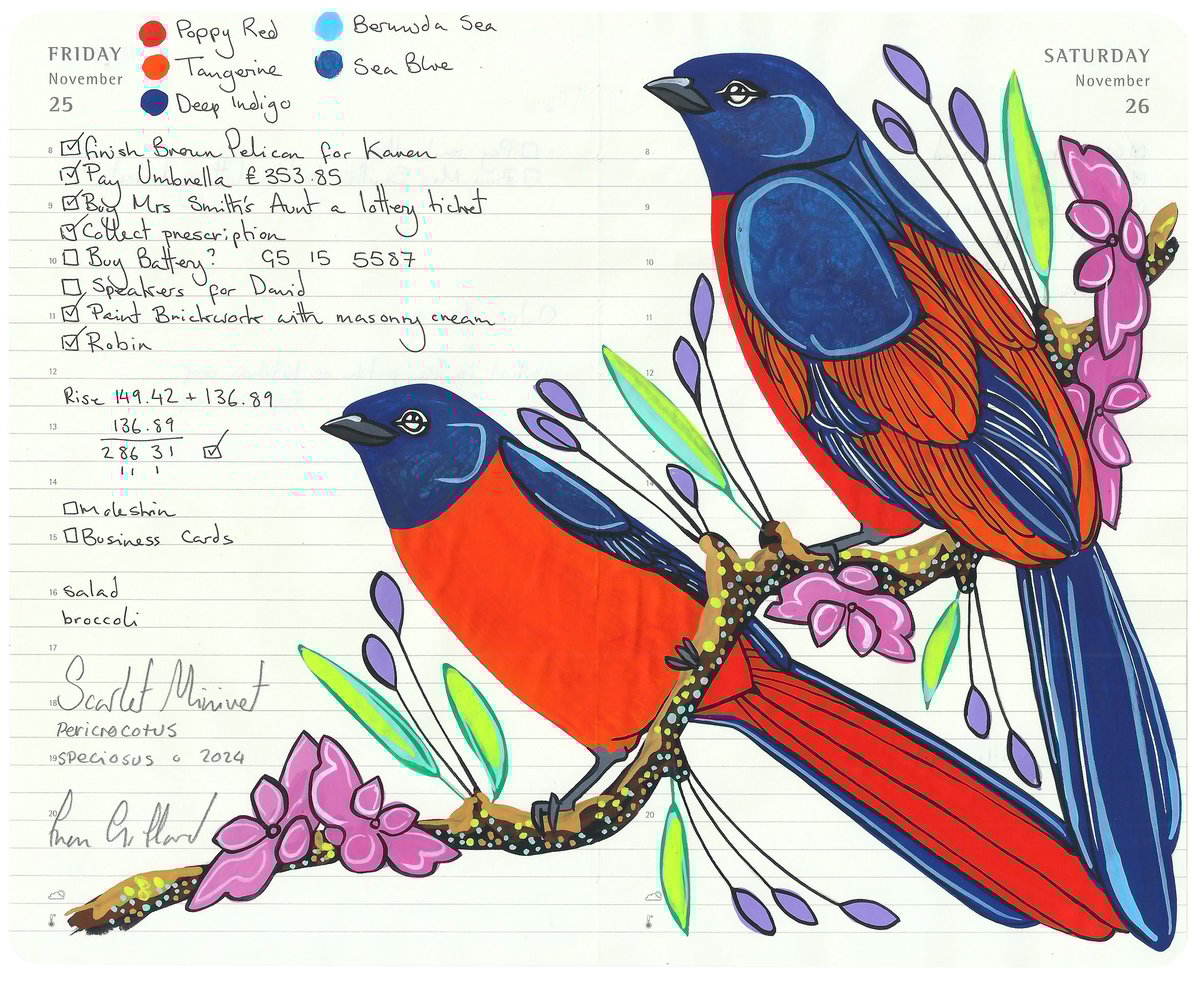 FRIDAY
November
25
Poppy Red
Tangerine
Deep Indigo
Bermuda Sea
Sea Blue
SATURDAY
November
26
8 ☑ Finish Brown Pelican for Karen
☑ Pay Umbrella £353.85
9 ☑ Buy Mrs Smith's Aunt a lottery ticket
☑ Collect prescription
10 ☐ Buy Battery? G5 15 5587
☐ Speakers for David
11 ☑ Paint Brickwork with masonry cream
☑ Robin
12
Rise 149.42 + 136.89
13 136.89
286 31 ☑
11 1
14
☐ moleskin
15 ☐ Business Cards
16 salad
broccoli
17
Scarlet Minivet
18
Pericrocotus
19 speciosus 2024
20
8
9
10
11
12
14
18
20